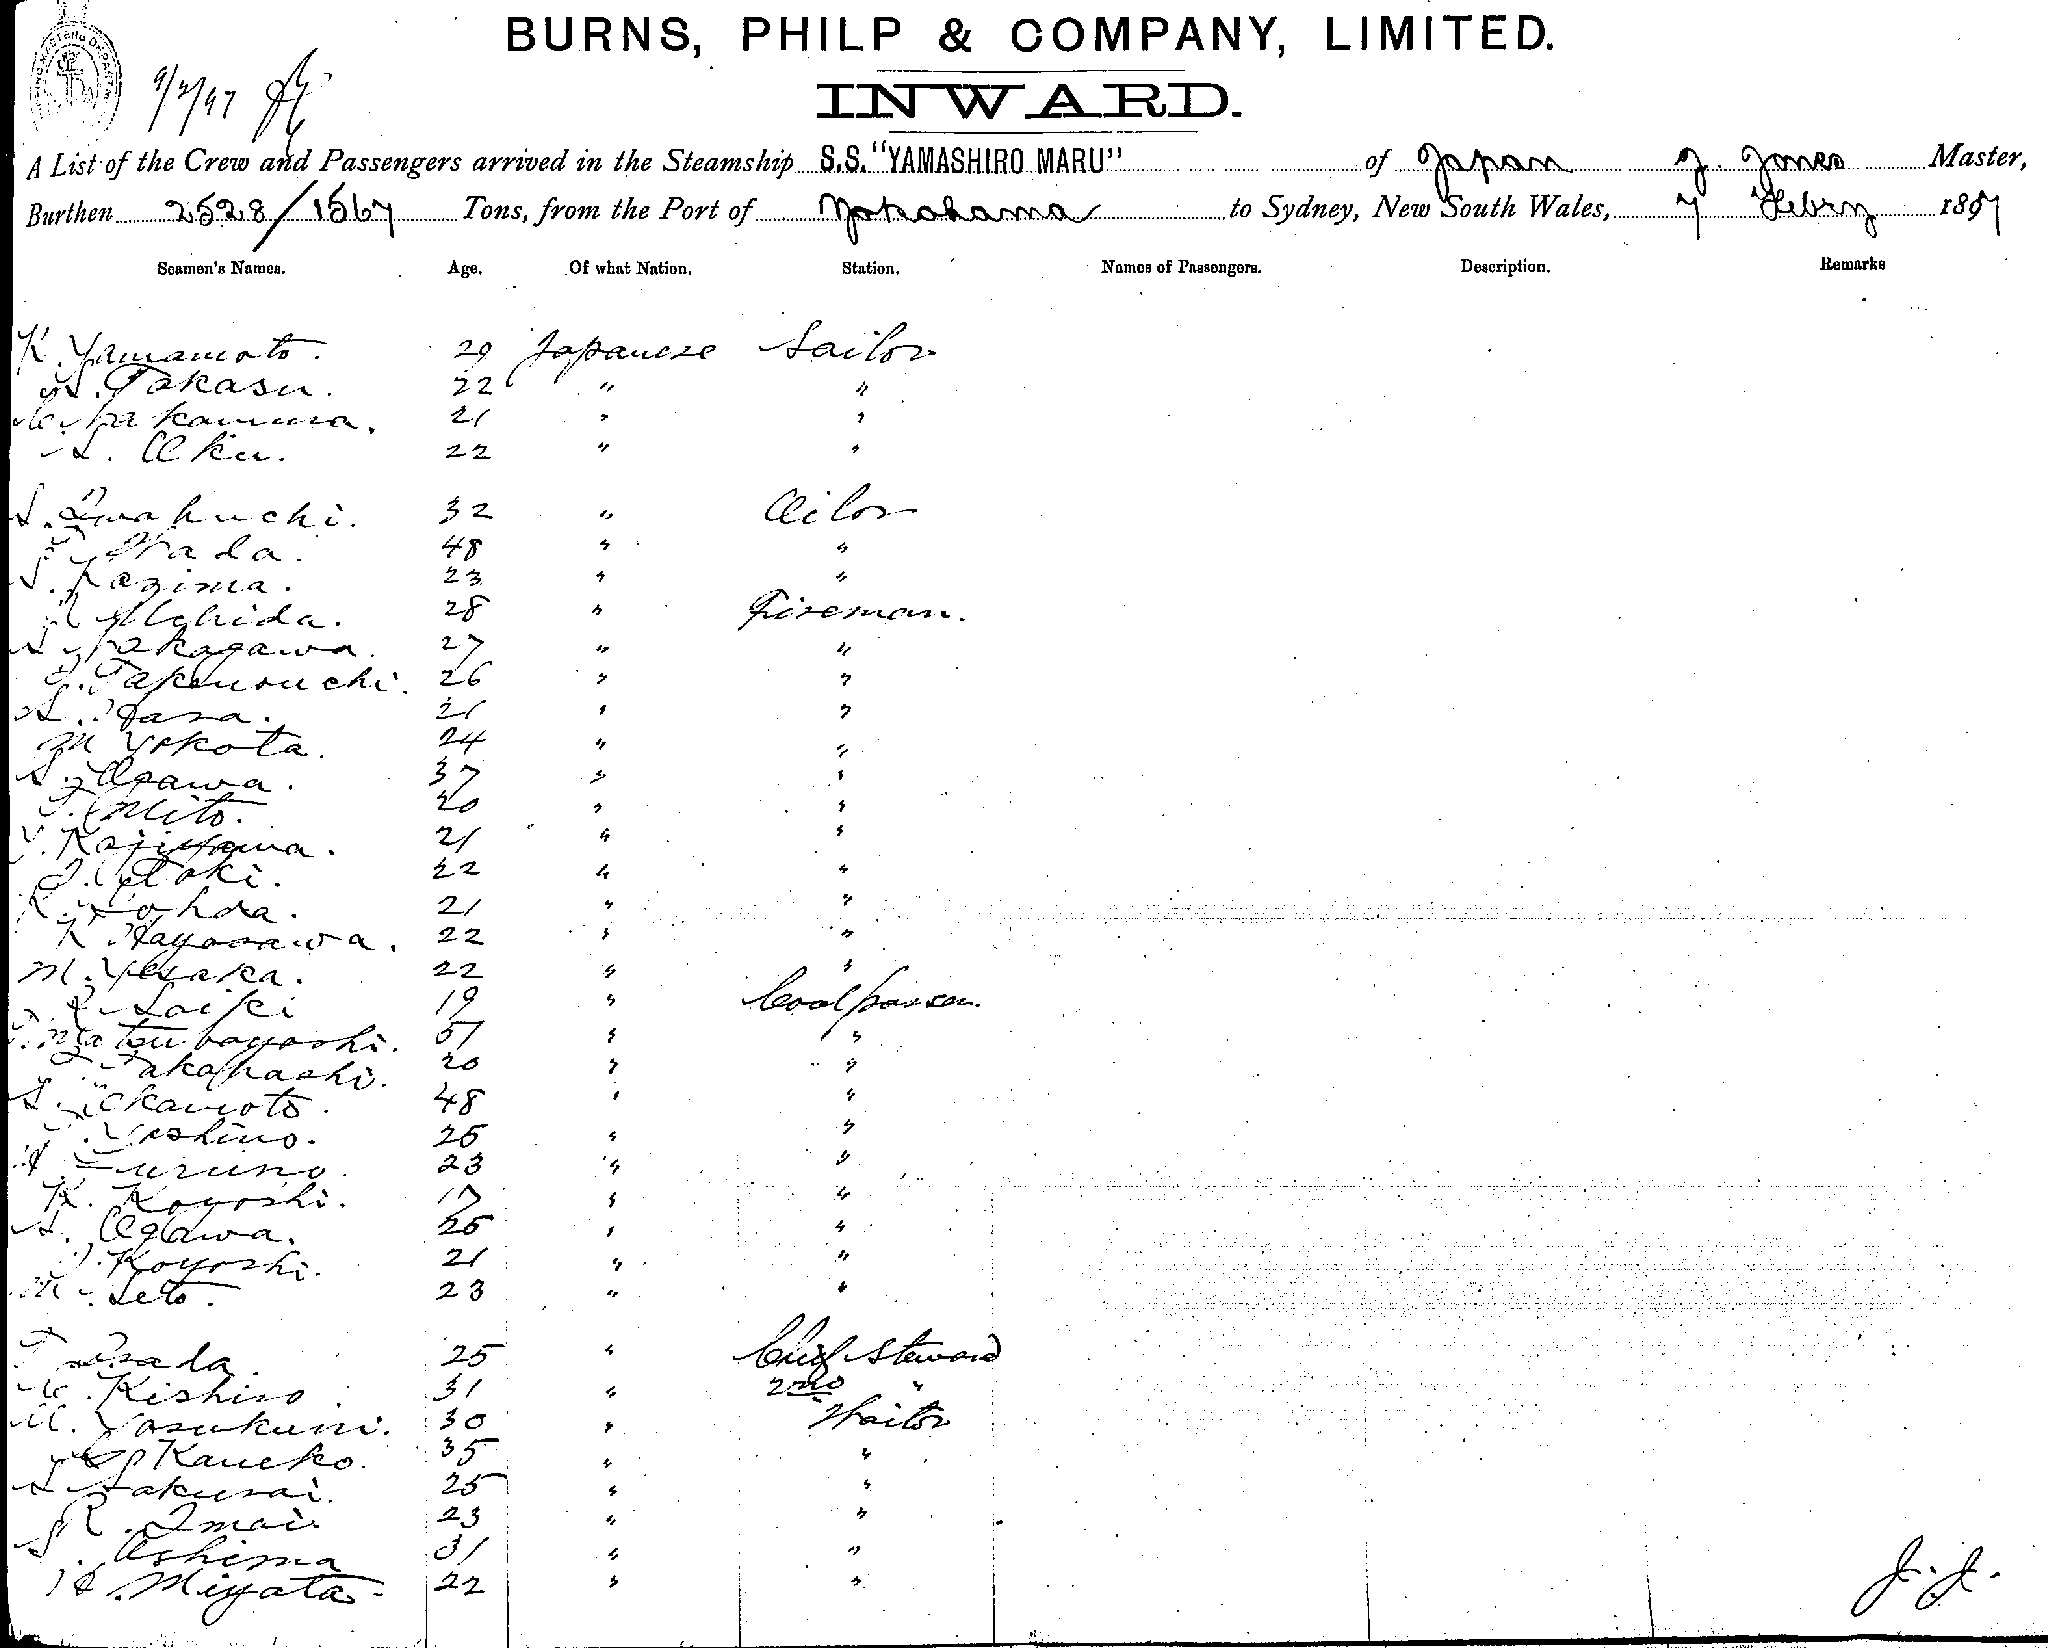 BURNS, PHILP & COMPANY, LIMITED.
INWARD.
9/2/97
A List of the Crew and Passengers arrived in the Steamship S.S. "YAMASHIRO MARU" of Japan J. Jones Master,
Burthen 2528/1567 Tons, from the Port of Yokohama to Sydney, New South Wales, 7 Febry 1897
Seamen's Names. Age. Of what Nation. Station. Names of Passengers. Description. Remarks
K. Yamamoto. 29 Japanese Sailor
Takasu. 22 " "
Nakamura. 21 " "
Oku. 22 " "
S. 32 " Oilor
Wada. 48 " "
S. Kazima. 23 " "
Uchida. 28 " Fireman.
Nakagawa. 27 " "
Takenouchi. 26 " "
Hara. 21 " "
M Yokota. 24 " "
S. Ogawa. 37 " "
T. Mito. 20 " "
Kajiyama. 21 " "
Aoki. 22 " "
K. 21 " "
K 22 " "
M. Uesaka. 22 " "
Saiki 19 " Coalpasser.
T. Matsubayashi. 51 " "
Takahashi. 20 " "
S. Okamoto. 48 " "
Yoshino. 25 " "
Furuno. 23 " "
K. Koyoshi. 17 " "
Ogawa. 25 " "
Koyoshi. 21 " "
M. Seto. 23 " "
T 25 " Chief Steward
Kishiro. 31 " 2nd "
M. Yasukuni. 30 " Waitor
Kaneko. 35 " "
Sakurai. 25 " "
R. Imai. 23 " "
S. Oshima 31 " "
Miyata. 22 " "
J. J.